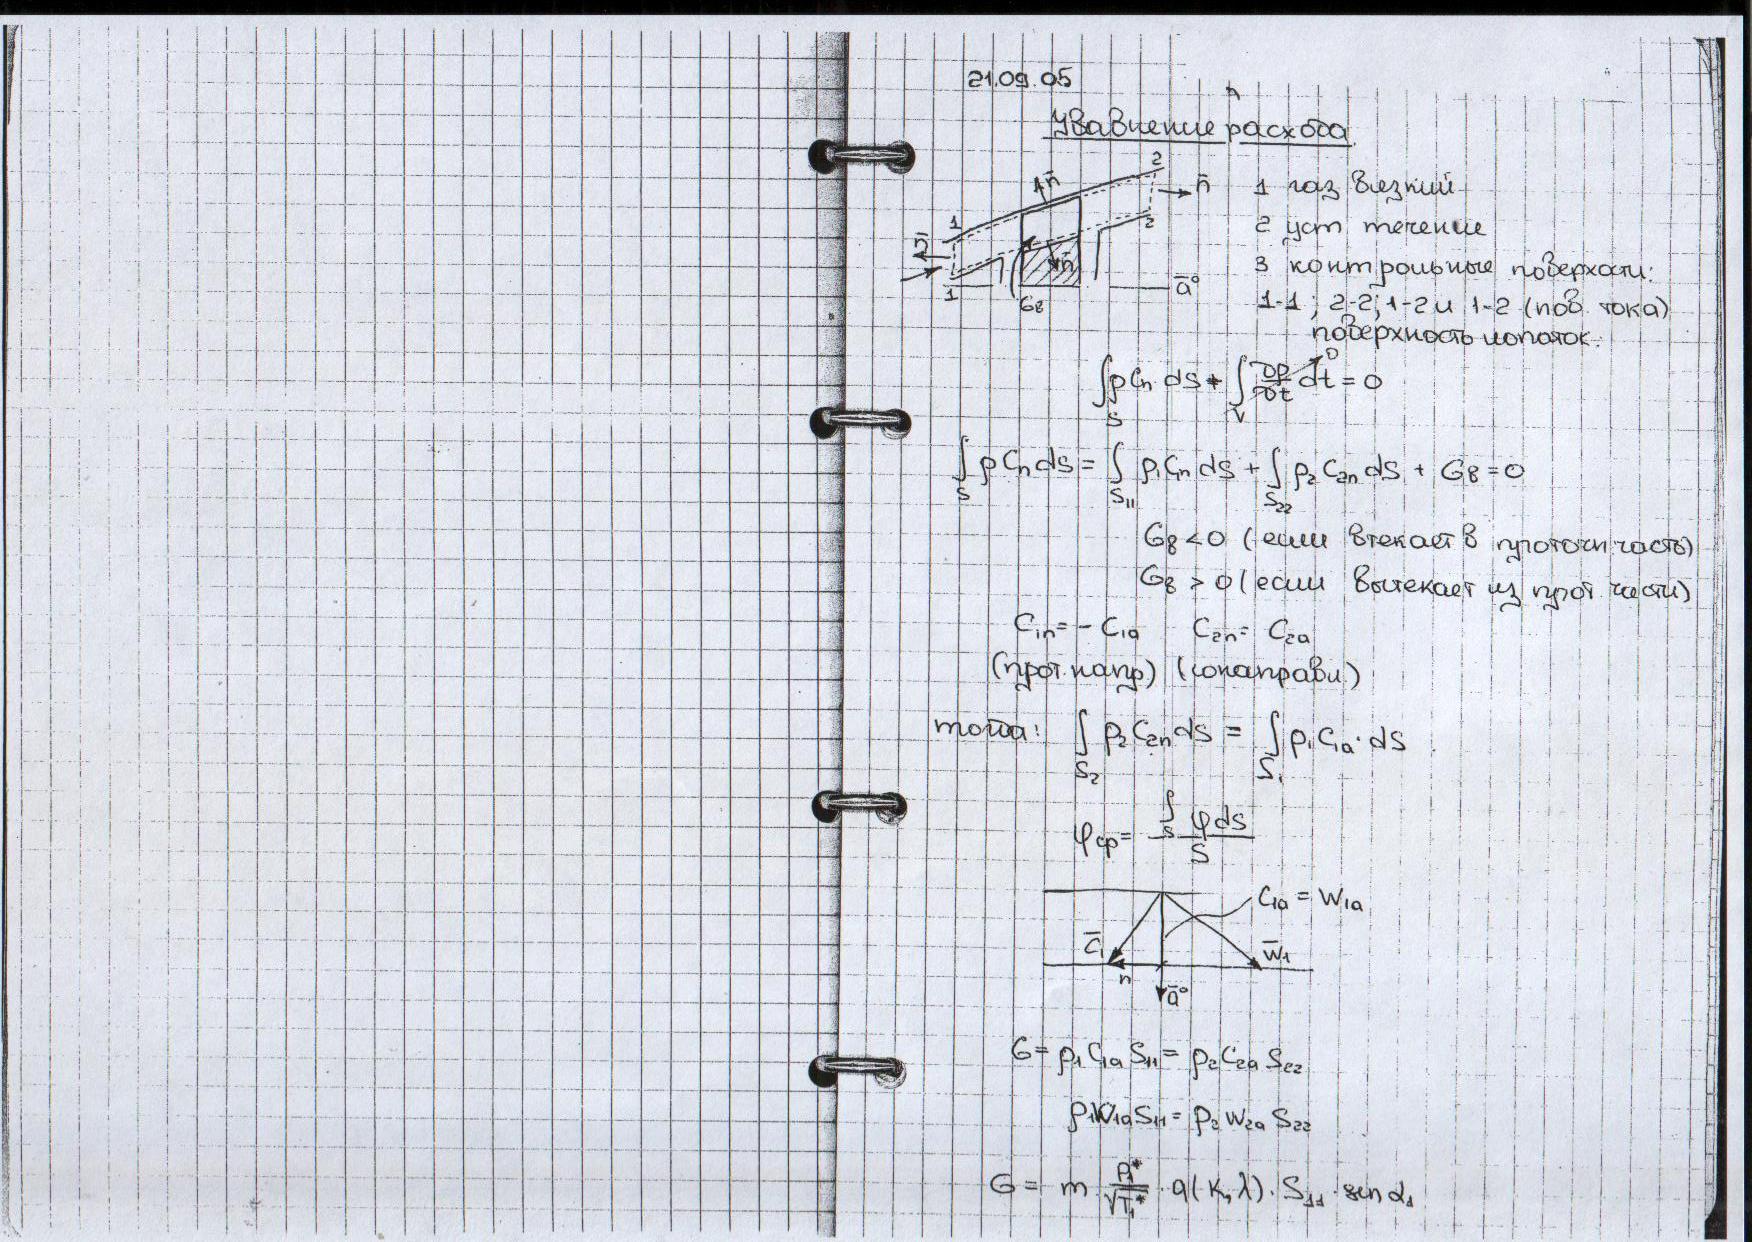 21.09.05
Уравнение расхода
1 газ вязкий
2 уст течение
3 контрольные поверхости:
1-1; 2-2; 1-2 и 1-2 (пов. тока)
поверхность лопаток.
2
n̄
n̄
1
2
n̄
n̄
ā°
1
Gв
∫_S ρCn ds + ∫_V ∂ρ/∂t dt = 0
0
∫_S ρCn ds = ∫_S11 ρ1C1n ds + ∫_S22 ρ2C2n ds + Gв = 0
Gв < 0 (если втекает в проточн часть)
Gв > 0 (если вытекает из прот части)
C1n = - C1a C2n = C2a
(прот. напр) (сонаправл)
тогда: ∫_S2 ρ2C2n ds = ∫_S1 ρ1C1a · ds
φср = ∫_S φds / S
C1a = W1a
C̄1 W̄1
n
ā°
G = ρ1C1aS11 = ρ2C2aS22
ρ1W1aS11 = ρ2W2aS22
G = m P1*/√T1* · q(k, λ) · S11 · sin α1